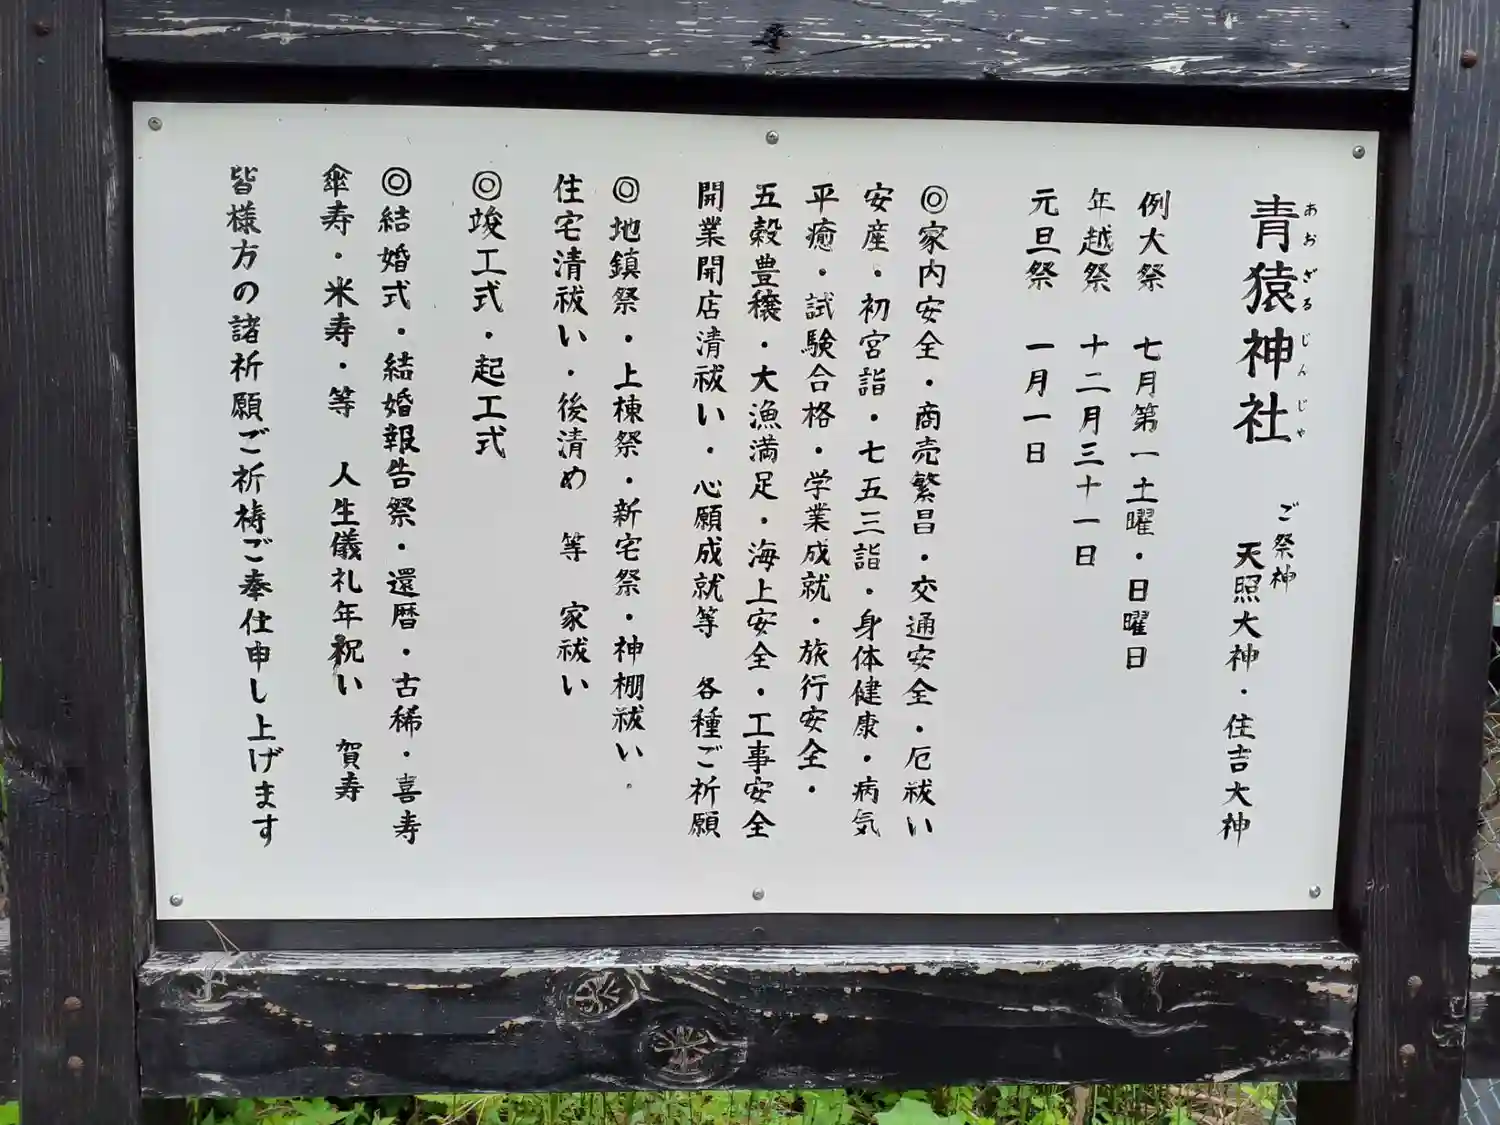 青猿神社 ご祭神 天照大神・住吉大神
あおざるじんじや
例大祭 七月第一土曜・日曜日
年越祭 十二月三十一日
元旦祭 一月一日
◎家内安全・商売繁昌・交通安全・厄祓い
安産・初宮詣・七五三詣・身体健康・病気
平癒・試験合格・学業成就・旅行安全・
五穀豊穣・大漁満足・海上安全・工事安全
開業開店清祓い・心願成就等 各種ご祈願
◎地鎮祭・上棟祭・新宅祭・神棚祓い・
住宅清祓い・後清め 等 家祓い
◎竣工式・起工式
◎結婚式・結婚報告祭・還暦・古稀・喜寿
傘寿・米寿・等 人生儀礼年祝い 賀寿
皆様方の諸祈願ご祈祷ご奉仕申し上げます